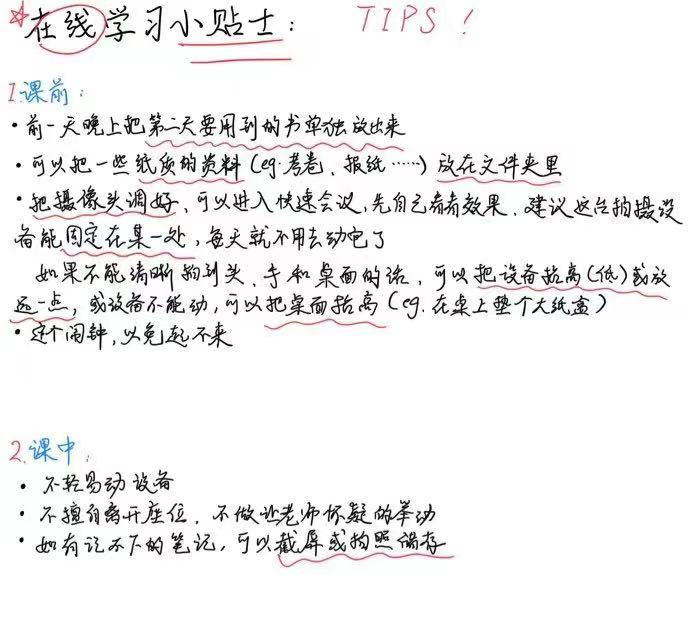 ☆在线学习小贴士： TIPS！
1.课前：
·前一天晚上把第二天要用到的书单独放出来
·可以把一些纸质的资料(eg.考卷、报纸……)放在文件夹里
·把摄像头调好，可以进入快速会议，先自己看看效果，建议这台拍摄设
备能固定在某一处，每天就不用去动它了
如果不能清晰拍到头、手和桌面的话，可以把设备抬高(低)或放
远一点，或设备不能动，可以把桌面抬高(eg.在桌上垫个大纸盒)
·定个闹钟，以免起不来
2.课中：
·不轻易动设备
·不擅自离开座位，不做让老师怀疑的举动
·如有记不下的笔记，可以截屏或拍照保存